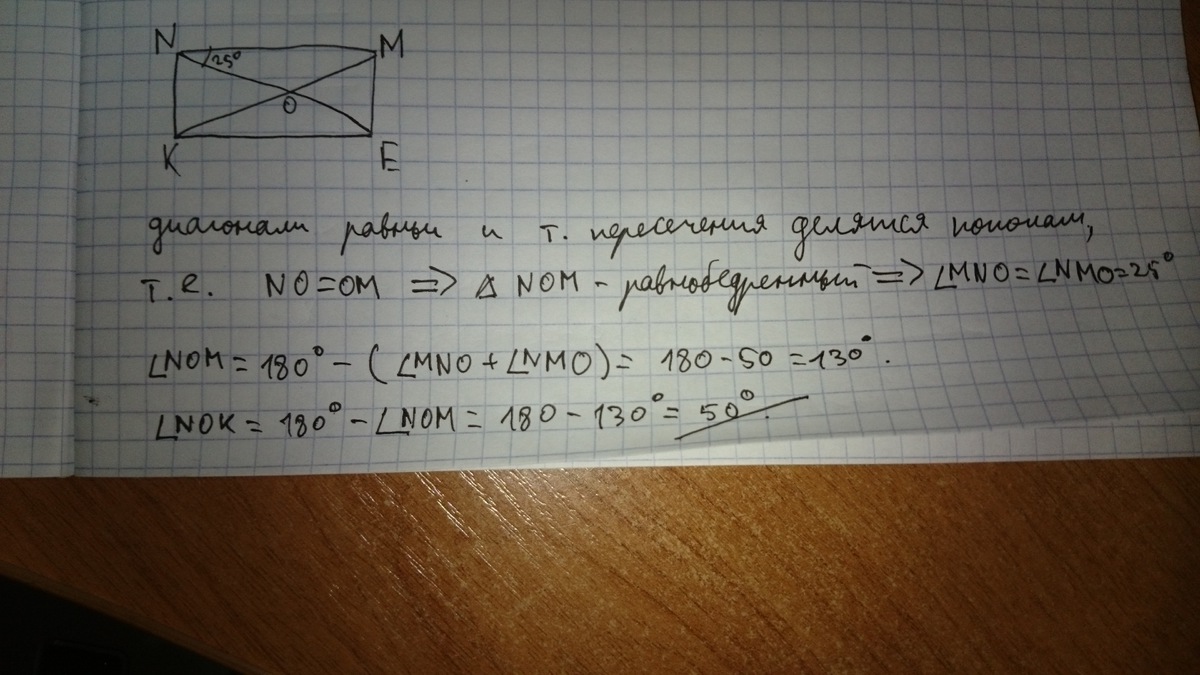 N 25° M
O
K E
диагонали равны и т. пересечения делятся пополам,
т.е. NO=OM => △ NOM - равнобедренный => ∠MNO=∠NMO=25°
∠NOM = 180° - (∠MNO + ∠NMO) = 180 - 50 = 130°.
∠NOK = 180° - ∠NOM = 180 - 130° = 50°.